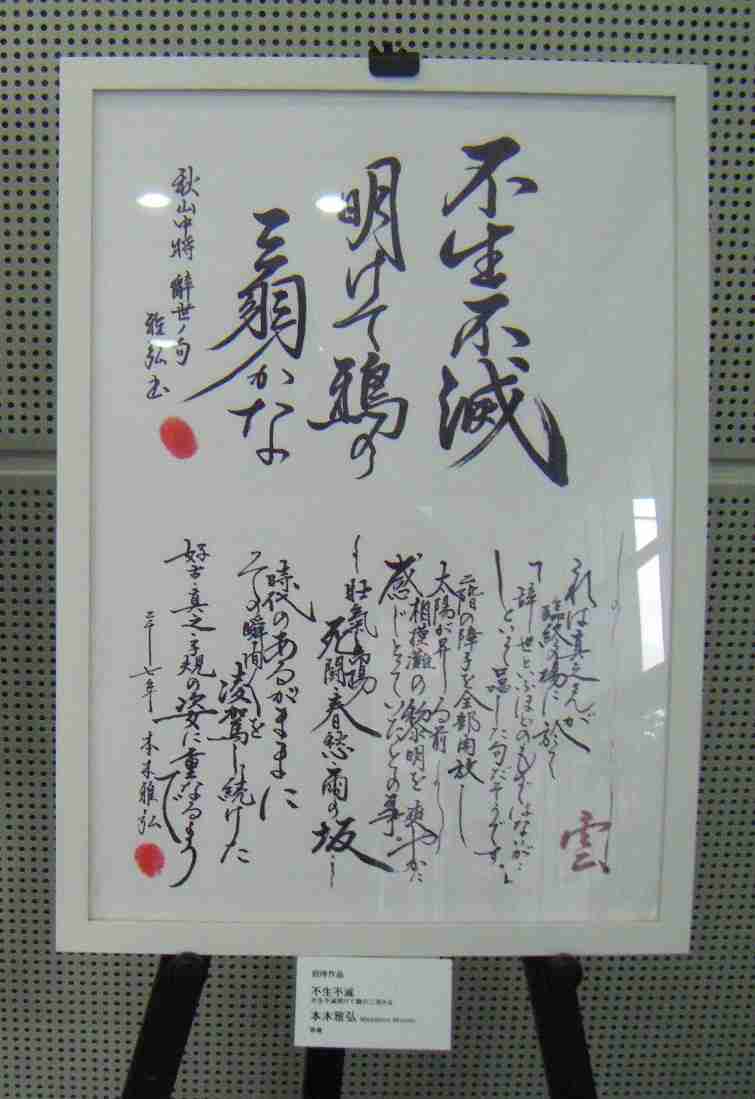 不生不滅
明けて鴉の
三羽かな
秋山中将 辭世ノ句
雅弘書
これは真之さんが
臨終の場に於て
「辞世といふほどのものではないが…
といって遺した句だそうです。」
二階の障子を全部開放し
太陽が昇しる前
相模灘の黎明を爽やかに
感じとっていたとの事。
壮氣
死闘春愁雨の坂
時代のあるがままに
その瞬間を
凌駕し続けた
好古・真之・子規の姿に重なるようで
二千七年 本木雅弘
雲
招待作品
不生不滅
不生不滅明けて鴉の三羽かな
本木雅弘 Masahiro Motoki